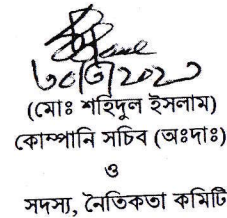 (মোঃ শহিদুল ইসলাম)
কোম্পানি সচিব (অঃদাঃ)
ও
সদস্য, নৈতিকতা কমিটি